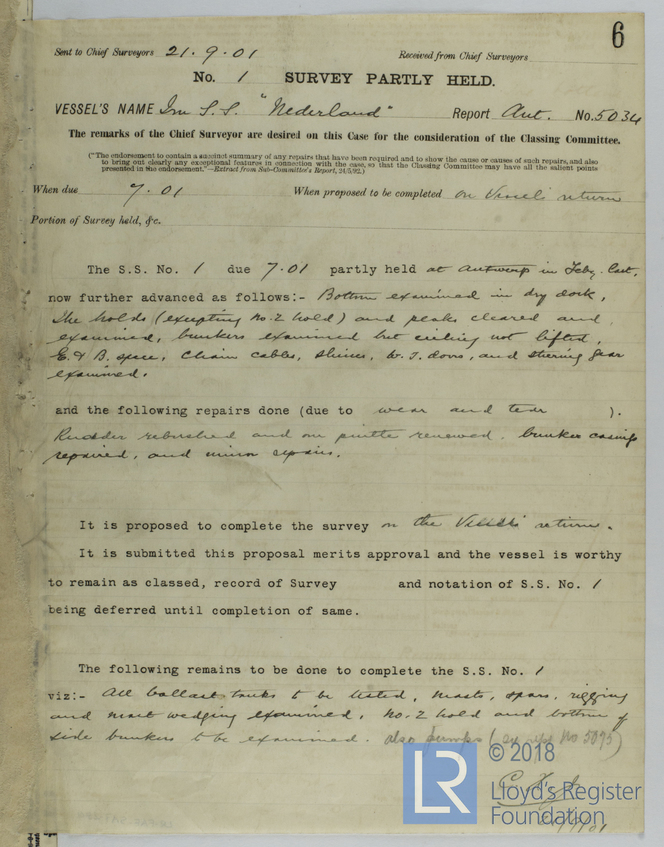 6
Sent to Chief Surveyors 21.9.01 Received from Chief Surveyors
No. 1 SURVEY PARTLY HELD.
VESSEL'S NAME Irn S.S. "Nederland" Report Ant. No. 5034
The remarks of the Chief Surveyor are desired on this Case for the consideration of the Classing Committee.
("The endorsement to contain a succinct summary of any repairs that have been required and to show the cause or causes of such repairs, and also
to bring out clearly any exceptional features in connection with the case, so that the Classing Committee may have all the salient points
presented in the endorsement."—Extract from Sub-Committee's Report, 24/3/92.)
When due 7.01 When proposed to be completed on Vessel's return
Portion of Survey held, &c.
The S.S. No. 1 due 7.01 partly held at Antwerp in Feby. last,
now further advanced as follows:- Bottom examined in dry dock,
the holds (excepting No. 2 hold) and peaks cleared and
examined, bunkers examined but ceiling not lifted,
E & B. space, chain cables, sluices, W.T. doors, and steering gear
examined.
and the following repairs done (due to wear and tear ).
Rudder rebushed and one pintle renewed, bunker casings
repaired, and minor repairs.
It is proposed to complete the survey on the Vessel's return.
It is submitted this proposal merits approval and the vessel is worthy
to remain as classed, record of Survey and notation of S.S. No. 1
being deferred until completion of same.
The following remains to be done to complete the S.S. No. 1
viz:- All ballast tanks to be tested, masts, spars, rigging
and mast wedging examined, No. 2 hold and bottom of
side bunkers to be examined. also pumps ( rpt No 5095)
© 2018
LR Lloyd's Register
Foundation